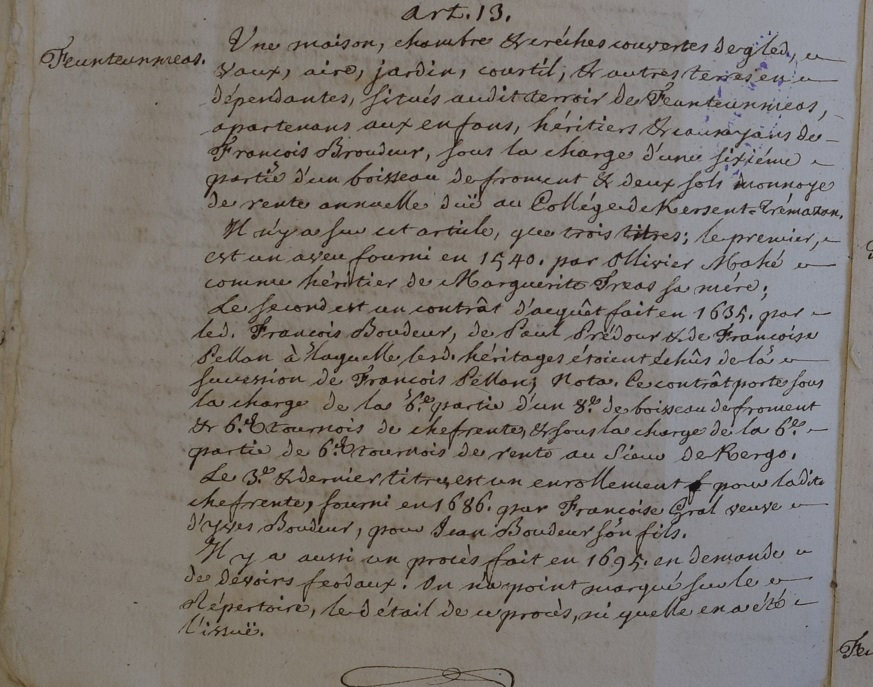 Art. 13.
Feunteunmeas.
Une maison, chambre & créches couvertes de gled,
vaux, aire, jardin, courtil, & autres terres en
dépendantes, situés audit terroir de Feunteunmeas,
apartenans aux enfans, héritiers & causayans de
François Broudeur, sous la charge d'une sixiéme
partie d'un boisseau de froment & deux sols monnoye
de rente annuelle duë au Collége de Kersent-Trémazan.
Il n'y a sur cet article, que trois titres; le premier,
est un aveu fourni en 1540. par Ollivier Mahé
comme héritier de Marguerite Treas sa mére;
Le second est un contrât d'acquêt fait en 1635. par
led. François Boudeur, de Paul Prédour & de Françoise
Pellan à laquelle lesd. héritages étoient échûs de la
sucession de François Pellan; Nota. Ce contrât porte sous
la charge de la 6.e partie d'un 8.e de boisseau de froment
& 6.d tournois de chefrente, & sous la charge de la 6.e
partie de 6.d tournois de rente au Sieur de Kergo.
Le 3.e & dernier titre, est un enrollement pour ladite
chefrente, fourni en 1686. par Françoise Gral veuve
d'Yves Boudeur, pour Jean Boudeur son fils.
Il y a aussi un procès fait en 1695. en demande
de devoirs feodaux. On n'a point marqué sur le
Répertoire, le détail de ce procès, ni quelle en a été
l'issuë.
Feu